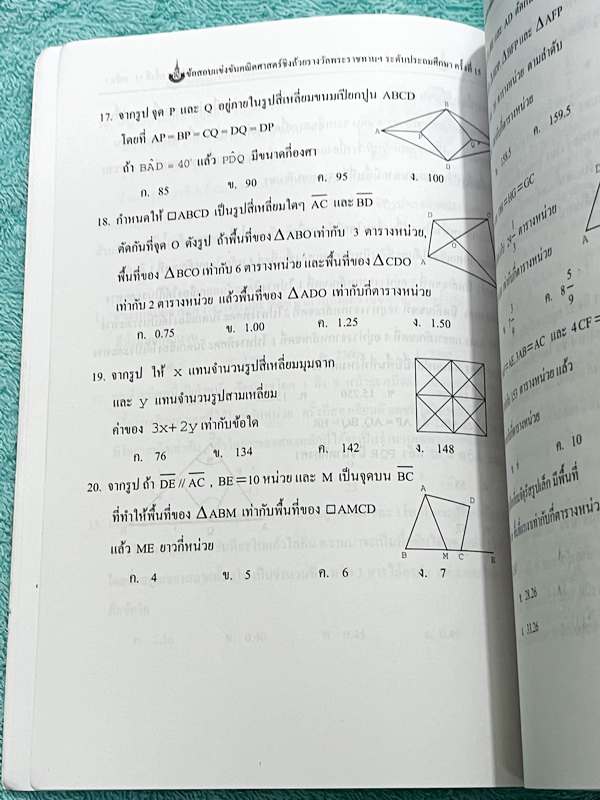 ข้อสอบแข่งขันคณิตศาสตร์ชิงถ้วยรางวัลพระราชทานฯ ระดับประถมศึกษา ครั้งที่ 15
17. จากรูป จุด P และ Q อยู่ภายในรูปสี่เหลี่ยมขนมเปียกปูน ABCD
โดยที่ AP=BP=CQ=DQ=DP
ถ้า BÂD = 40° แล้ว PD̂Q มีขนาดกี่องศา
ก. 85 ข. 90 ค. 95 ง. 100
A B D P Q
18. กำหนดให้ □ABCD เป็นรูปสี่เหลี่ยมใดๆ AC และ BD
ตัดกันที่จุด O ดังรูป ถ้าพื้นที่ของ △ABO เท่ากับ 3 ตารางหน่วย,
พื้นที่ของ △BCO เท่ากับ 6 ตารางหน่วย และพื้นที่ของ △CDO
เท่ากับ 2 ตารางหน่วย แล้วพื้นที่ของ △ADO เท่ากับกี่ตารางหน่วย
ก. 0.75 ข. 1.00 ค. 1.25 ง. 1.50
D O A
19. จากรูป ให้ x แทนจำนวนรูปสี่เหลี่ยมมุมฉาก
และ y แทนจำนวนรูปสามเหลี่ยม
ค่าของ 3x+2y เท่ากับข้อใด
ก. 76 ข. 134 ค. 142 ง. 148
20. จากรูป ถ้า DE // AC , BE=10 หน่วย และ M เป็นจุดบน BC
ที่ทำให้พื้นที่ของ △ABM เท่ากับพื้นที่ของ □AMCD
แล้ว ME ยาวกี่หน่วย
ก. 4 ข. 5 ค. 6 ง. 7
A D B M C E
และ AD
BFP และ △AFP
ตารางหน่วย ตามลำดับ
ค. 159.5
=HG=GC
ตารางหน่วย
ค. 8 5/9
3AB=AC และ 4CF=
153 ตารางหน่วย แล้ว
ค. 10
มีพื้นที่
ข. 28.26
ง. 33.26